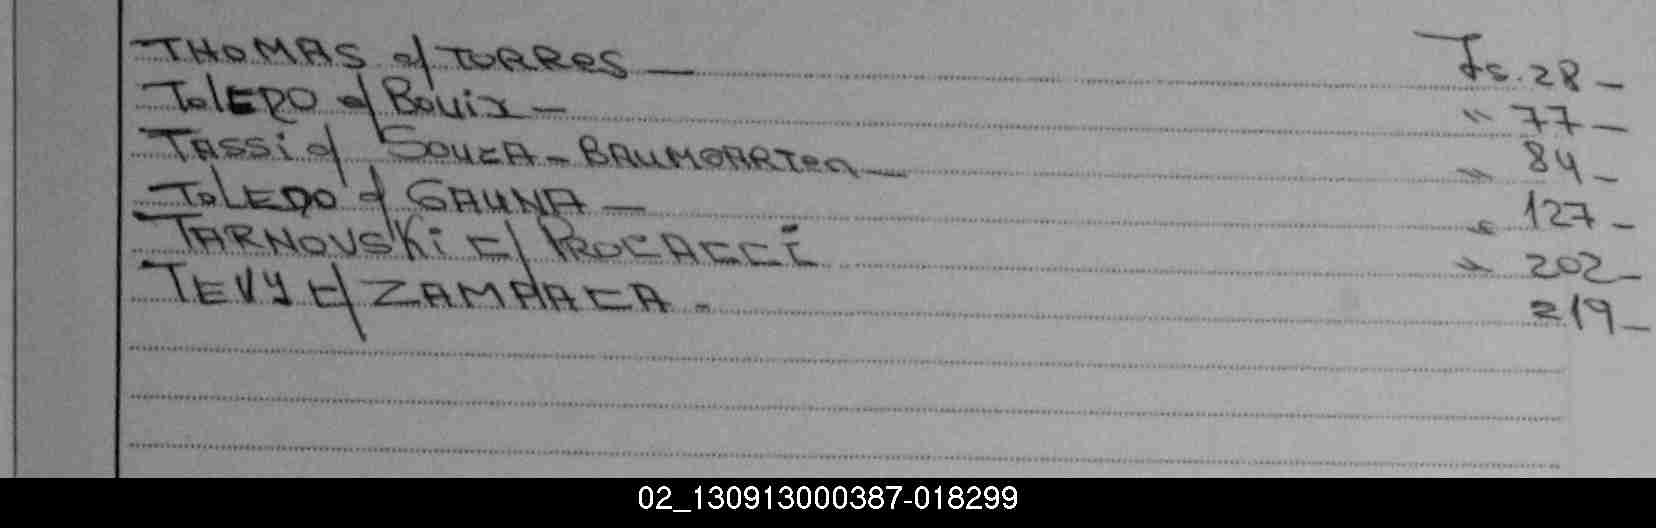 THOMAS c/ TORRES — Fs. 28 —
ToLEDO c/ Bouix — " 77 —
TASSi c/ SOUZA - BAUMGARTEn — " 84 —
ToLEDO c/ GAUNA — " 127 —
TARNOVSKi c/ PROCACCi " 202 —
TEVY c/ ZAMPACA - 219 —
02_130913000387-018299